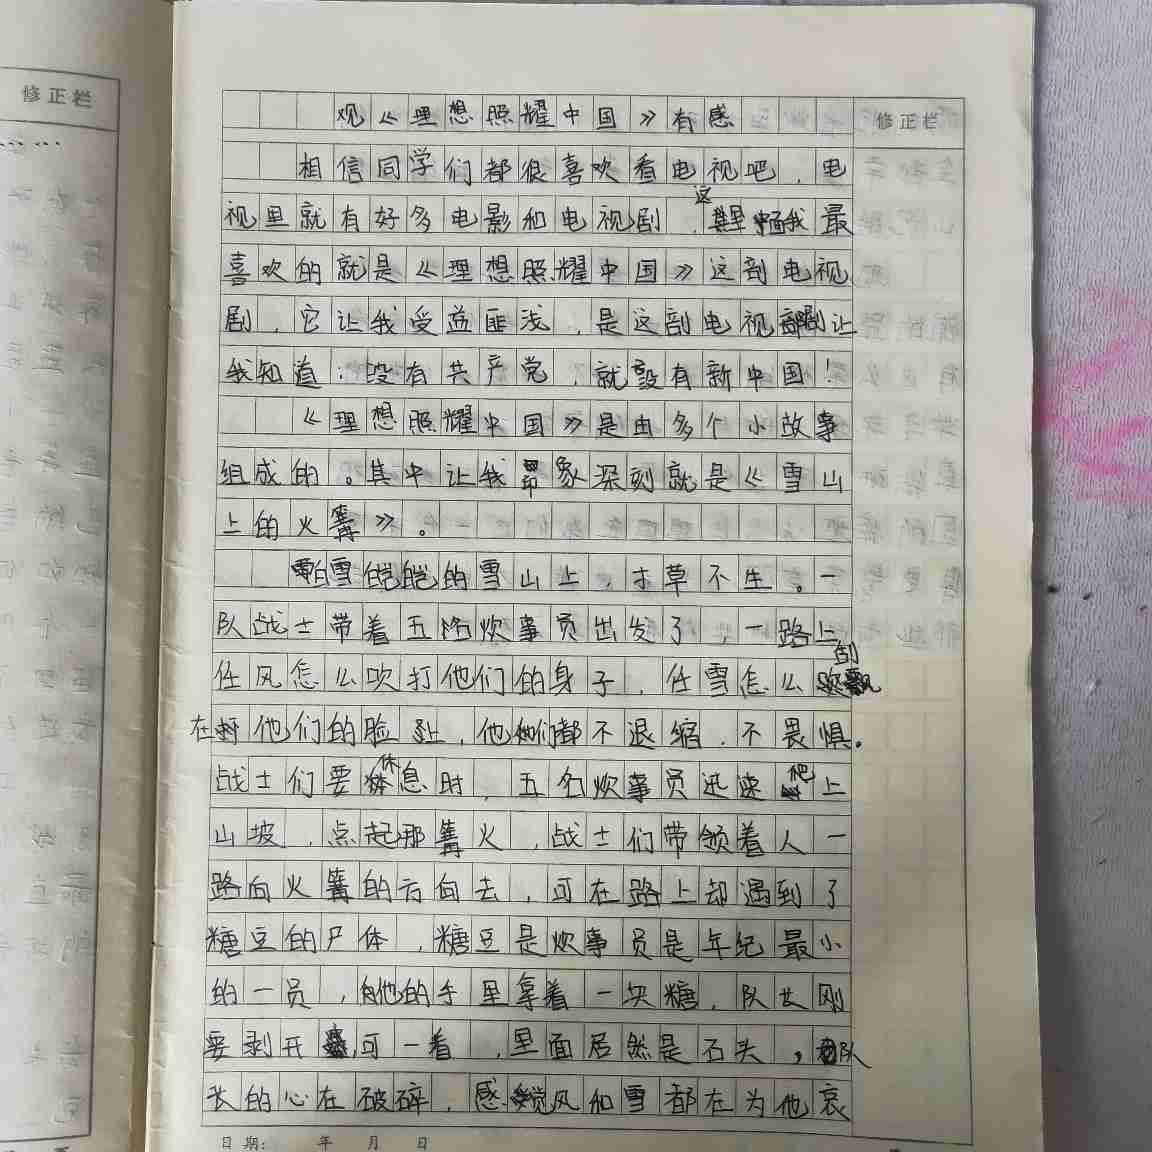 修正栏
观《理想照耀中国》有感
修正栏
相信同学们都很喜欢看电视吧，电
视里就有好多电影和电视剧，这里我最
喜欢的就是《理想照耀中国》这剖电视
剧，它让我受益匪浅，是这剖电视剧让
我知道：没有共产党，就没有新中国！
《理想照耀中国》是由多个小故事
组成的。其中让我印象深刻就是《雪山
上的火篝》。
白雪皑皑的雪山上，寸草不生。一
队战士带着五名炊事员出发了，一路上
任风怎么吹打他们的身子，任雪怎么刮飘
在他们的脸上，他们都不退缩，不畏惧。
战士们要休息时，五名炊事员迅速爬上
山坡，点起那篝火，战士们带领着人一
路向火篝的方向去，可在路上却遇到了
糖豆的尸体，糖豆是炊事员是年纪最小
的一员，他的手里拿着一块糖，队长刚
要剥开，可一看，里面居然是石头，队
长的心在破碎，感觉风和雪都在为他哀
日期： 年 月 日